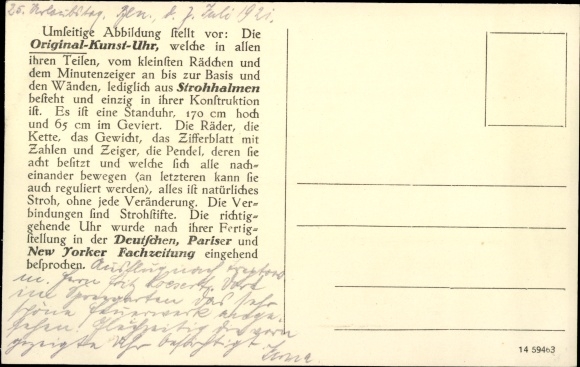 25. Urlaubstag. Bln. d. 7. Juli 1921.
Umseitige Abbildung stellt vor: Die
Original-Kunst-Uhr, welche in allen
ihren Teilen, vom kleinsten Rädchen und
dem Minutenzeiger an bis zur Basis und
den Wänden, lediglich aus Strohhalmen
besteht und einzig in ihrer Konstruktion
ist. Es ist eine Standuhr, 170 cm hoch
und 65 cm im Geviert. Die Räder, die
Kette, das Gewicht, das Zifferblatt mit
Zahlen und Zeiger, die Pendel, deren sie
acht besitzt und welche sich alle nach-
einander bewegen (an letzteren kann sie
auch reguliert werden), alles ist natürliches
Stroh, ohne jede Veränderung. Die Ver-
bindungen sind Strohstifte. Die richtig-
gehende Uhr wurde nach ihrer Fertig-
stellung in der Deutschen, Pariser und
New Yorker Fachzeitung eingehend
besprochen. Ausflug nach Treptow
m. Herrn Fritz Dort
im Spreegarten das sehr
schöne Feuerwerk ange-
sehen! Gleichzeitig die vorn
gezeigte Uhr besichtigt.
14 59463